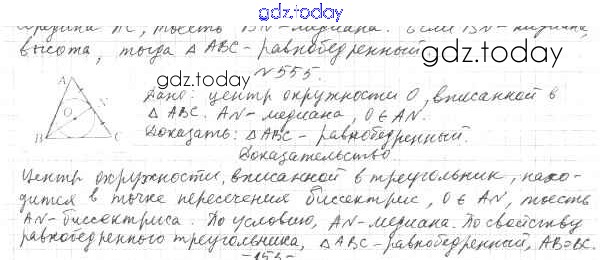 gdz.today
середина AC, то есть BN - медиана. Если BN - медиана,
высота, тогда △ABC - равнобедренный
gdz.today
gdz.today
№555.
Дано: центр окружности O, вписанной в
△ABC. AN - медиана, O ∈ AN.
Доказать: △ABC - равнобедренный.
Доказательство.
A
N
O
B
C
Центр окружности, вписанной в треугольник, нахо-
дится в точке пересечения биссектрис, O ∈ AN, то есть
AN - биссектриса. По условию, AN - медиана. По свойству
равнобедренного треугольника, △ABC - равнобедренный, AB = BC.
-155-
gdz.today